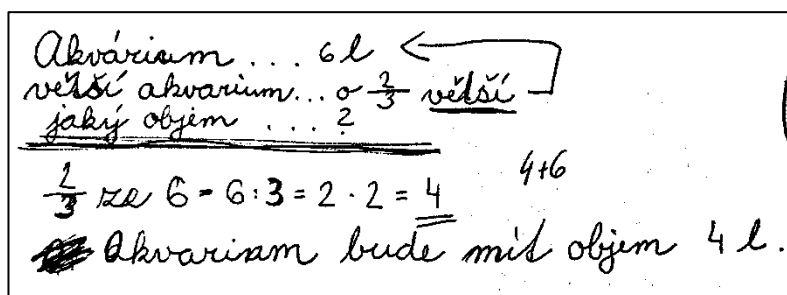 Akvárium ... 6 l
větší akvarium ... o 2/3 větší
jaký objem ... ?
2/3 ze 6 = 6 : 3 = 2 · 2 = 4
4+6
Akvarium bude mít objem 4 l.